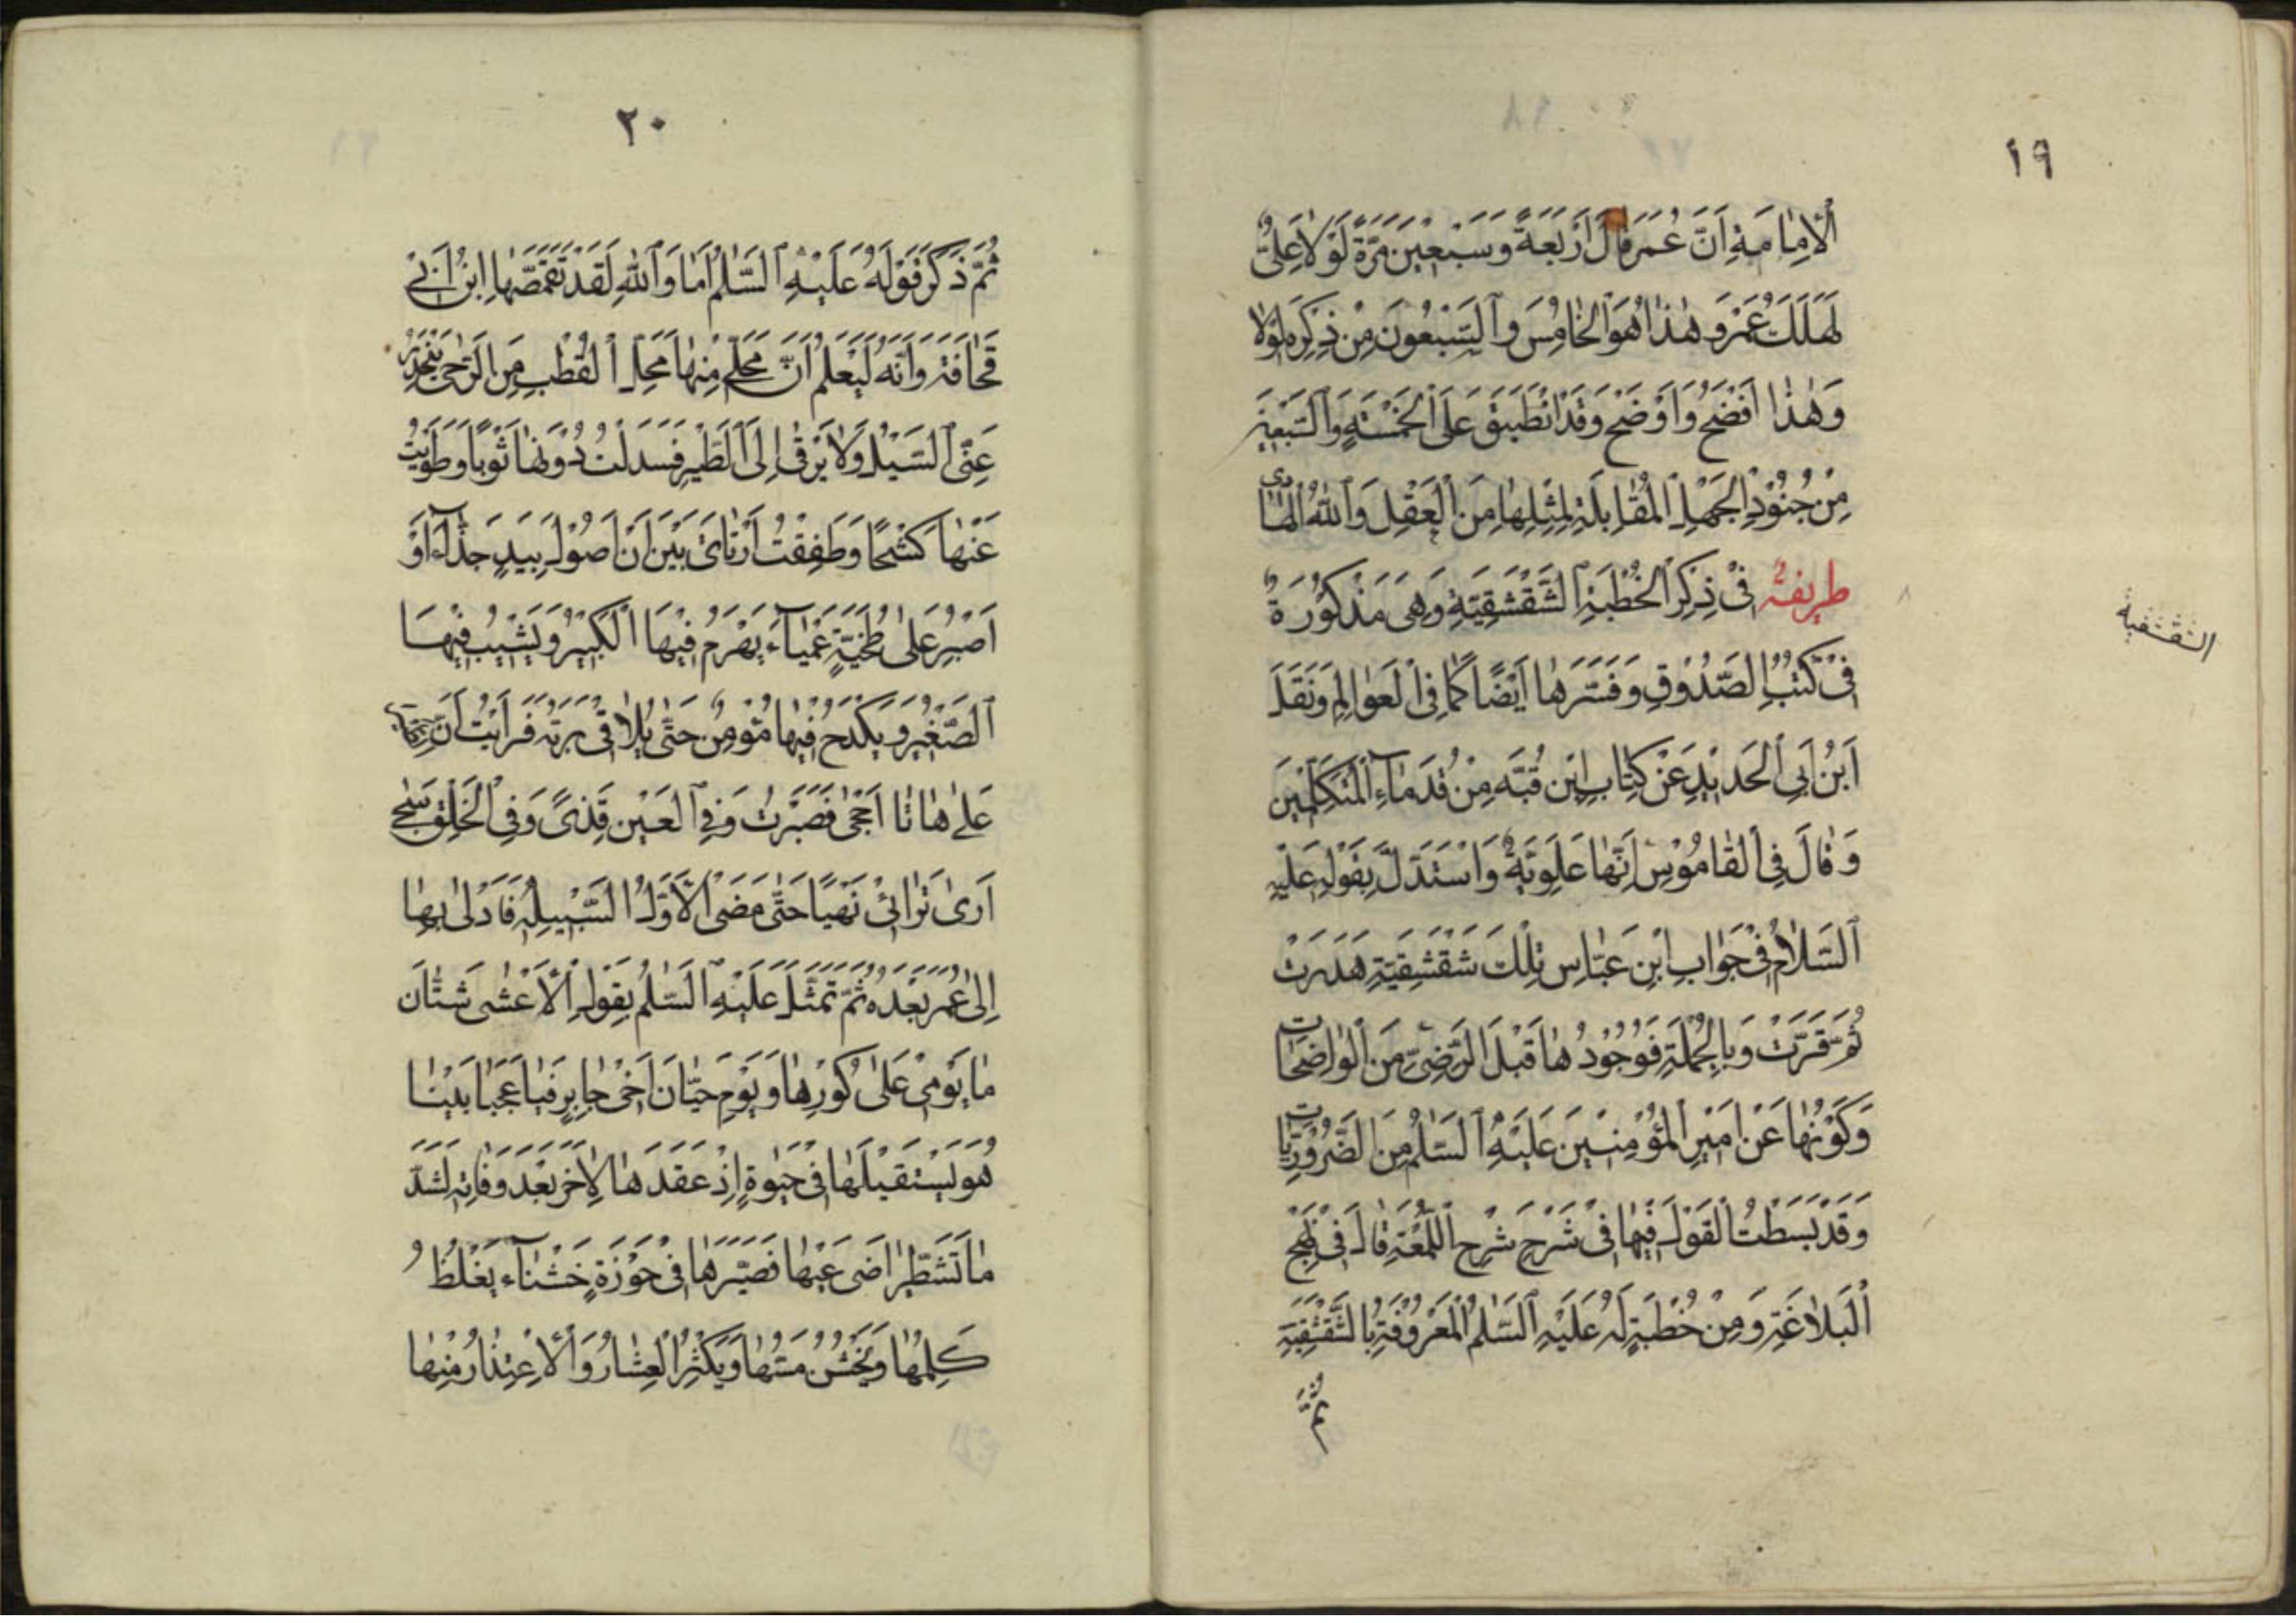 ١٩
اَلْاِمٰامَةِ اَنَّ عُمَرَ قٰالَ اَرْبَعَةً وَسَبْعِيْنَ مَرَّةً لَوْلاٰ عَلِىٌّ
لَهَلَكَ عُمَرُ وَ هٰذٰا هُوَ الْخٰامِسُ وَالسَّبْعُونَ مِنْ ذِكْرِهِ لَوْلاٰ
وَ هٰذٰا اَفْضَحُ وَ اَوْضَحُ وَ قَدْ انْطَبَقَ عَلَى الْخَمْسَةِ وَالسَّبْعِيْنَ
مِنْ جُنُوْدِ الْجَهْلِ الْمُقٰابِلَةِ لِمِثْلِهٰا مِنَ الْعَقْلِ وَ اللّٰهُ الْهٰادى
طريفةٌ فىْ ذِكْرِ الْخُطْبَةِ الشَّقْشَقِيَّةِ وَهِىَ مَذْكُوْرَةٌ
فىْ كُتُبِ الصَّدُوْقِ وَ فَسَّرَهٰا اَيْضًا كَمٰا فِى الْعَوٰالِمِ وَ نَقَلَ
اَبْنُ اَبِى الْحَديْدِ عَنْ كِتٰابِ ابْنِ قُبَّه مِنْ قُدَمٰآءِ الْمُتَكَلِّمْيْنَ
وَ قٰالَ فِى الْقٰامُوْسِ اِنَّهٰا عَلَوِيَّةٌ وَ اسْتَدَلَّ بِقَوْلِهِ عَلَيْهِ
اَلسَّلاٰمُ فىْ جَوٰابِ ابْنِ عَبّٰاسٍ تِلْكَ شَقْشَقِيَّةٌ هَدَرَتْ
ثُمَّ قَرَّتْ وَ بِالْجُمْلَةِ فَوُجُوْدُهٰا قَبْلَ الرَّضِىِّ مِنَ الْوٰاضِحٰات
وَ كَوْنُهٰا عَنْ اَميْرِ الْمُؤْمِنيْنَ عَلَيْهِ السَّلٰمُ مِنَ الضَّرُوْرِيّٰات
وَ قَدْ بَسَطْتُ الْقَوْلَ فيْهٰا فىْ شَرْحِ شَرْحِ اللُّمْعَةِ قٰالَ فىْ نَهْجِ
اَلْبَلاٰغَةِ وَ مِنْ خُطْبَةٍ لَهُ عَلَيْهِ السَّلٰمُ الْمَعْرُوْفَةِ بِالشَّقْشَقِيَّةِ
ثُمَّ
٢٠
ثُمَّ ذَكَرَ قَوْلَهُ عَلَيْهِ السَّلٰمُ اَمٰا وَ اللّٰهِ لَقَدْ تَقَمَّصَهٰا ابْنُ اَبىْ
قُحٰافَةَ وَ اَنَّهُ لَيَعْلَمُ اَنَّ مَحَلّى مِنْهٰا مَحَلُّ الْقُطْبِ مِنَ الرَّحٰى يَنْحَدِرُ
عَنّىِ السَّيْلُ وَ لاٰ يَرْقٰى اِلَىَّ الطَّيْرُ فَسَدَلْتُ دُوْنَهٰا ثَوْبًا وَ طَوَيْتُ
عَنْهٰا كَشْحًا وَ طَفِقْتُ اَرْتٰاىُ بَيْنَ اَنْ اَصُوْلَ بِيَدٍ جَذّٰآءَ اَوْ
اَصْبِرَ عَلىٰ طَخْيَةٍ عَمْيٰآءَ يَهْرَمُ فيْهَا الْكَبيْرُ وَ يَشْيْبُ فيْهَا
اَلصَّغْيْرُ وَ يَكْدَحُ فيْهٰا مُؤْمِنٌ حَتّٰى يُلاٰقىْ رَبَّهُ فَرَاَيْتُ اَنَّ
عَلىٰ هٰاتٰا اَحْجىٰ فَصَبَرْتُ وَ فِى الْعَيْنِ قَذىً وَ فِى الْحَلْقِ شَجٰى
اَرىٰ تُرٰاثىْ نَهْبًا حَتّٰى مَضَى الْاَوَّلُ لِسَبيْلِهِ فَاَدْلىٰ بِهٰا
اِلىٰ عُمَرَ بَعْدَهُ ثُمَّ تَمَثَّلَ عَلَيْهِ السَّلٰمُ بِقَوْلِ الْاَعْشى شَتّٰانَ
مٰا يَوْمىْ عَلىٰ كُوْرِهٰا وَ يَوْمِ حَيّٰانَ اَخىْ جٰابِرٍ فَيٰا عَجَبًا بَيْنٰا
هُوَ يَسْتَقيْلُهٰا فىْ حَيٰوةٍ اِذْ عَقَدَهٰا لِاٰخَرَ بَعْدَ وَفٰاتِهِ لَشَدَّ
مٰا تَشَطَّرٰا ضَرْعَيْهٰا فَصَيَّرَهٰا فىْ حَوْزَةٍ خَشْنٰآءَ يَغْلُظُ
كَلِمُهٰا وَ يَخْشُنُ مَسُّهٰا وَ يَكْثُرُ الْعِثٰارُ وَ الْاِعْتِذٰارُ مِنْهٰا